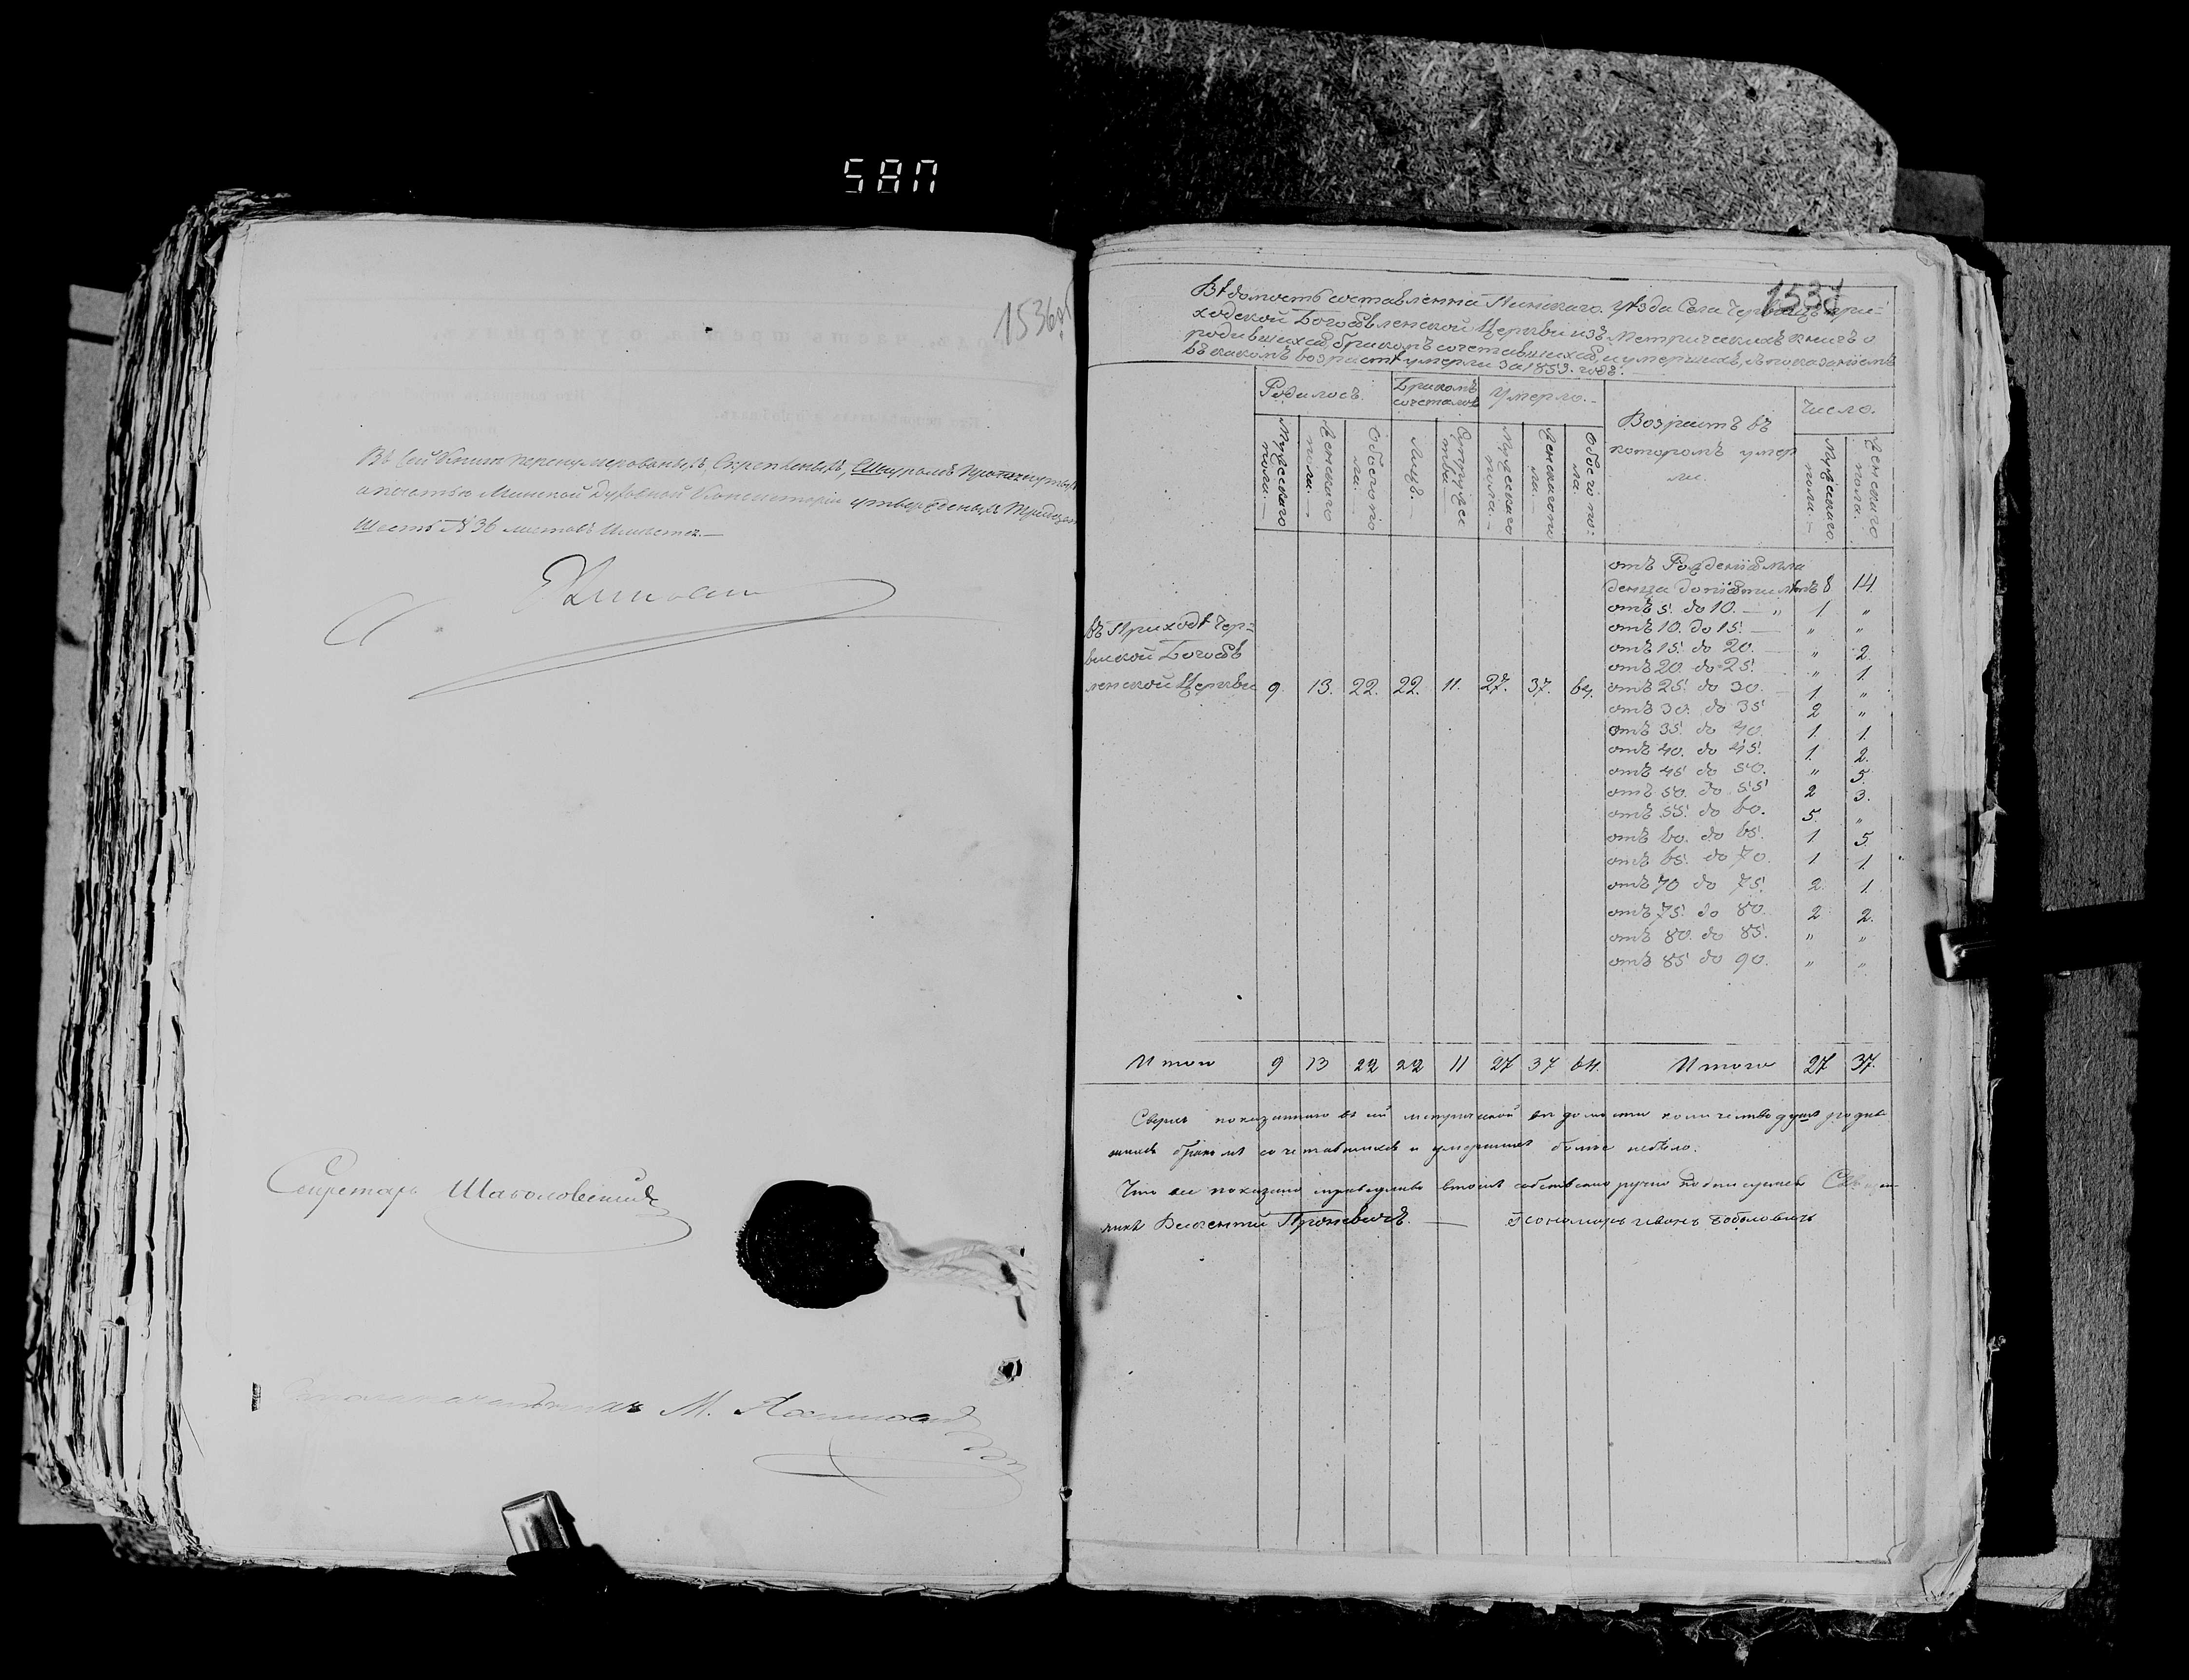 5807
1536об
Въ сей Книгѣ перенумерованыхъ, скрепленыхъ, Шнуромъ
Минской Духовной Консисторіи утвержденыхъ
Шесть №36 листовъ Имѣется.—
Секретарь
М.
1537
Вѣдомость составленна Пинскаго Уѣзда Села при=
ходской Богоявленской Церкви изъ Метрическихъ книгъ о
родившихся, бракомъ сочетавшихся, и умершихъ, съ показаніемъ
въ какомъ возрастѣ умерли за 1853. годъ.
Родилось.
Бракомъ сочеталось
Умерло.
Возрастъ въ
которомъ умер
ли.
Число.
Мужескаго пола.—
Женскаго пола.—
Обоего по
ла.—
Лицъ.—
Супруже
ства.—
Мужескаго пола.—
Женскаго по
ла.—
Обоего по:
ла.
Мужескаго. пола.—
Женскаго пола.
отъ Рожденія мла
денца до пяти лѣтъ 8 14.
отъ 5. до 10. — „ 1 „
отъ 10. до 15. — „ „
отъ 15. до 20. „ 2
отъ 20 до 25. „ 1.
отъ 25. до 30. 1. „
отъ 30. до 35 2 „
отъ 35. до 40. 1. 1.
отъ 40. до 45. 1. 2.
отъ 45 до 50. „ 5.
отъ 50. до 55 2 3.
отъ 55. до 60. 5. „
отъ 60. до 65. 1 5.
отъ 65. до 70. 1 1.
отъ 70 до 75. 2. 1.
отъ 75. до 80. 2 2.
отъ 80. до 85. „ „
отъ 85 до 90. „ „
въ Приходѣ Чер=
вской Богояв
ленской Церкви 9. 13. 22. 22. 11. 27. 37. 64.
Итого 9 13 22 22 11 27 37 64. Итого 27 37.
Сверхъ показаннаго въ сей метрической вѣдомости количества душъ родив
шихся бракомъ сочетавшихся и умершихъ болѣе небыло.
Что все показано справедливо втомъ собственно ручно подписуемся
Викентій Понамарь Иванъ